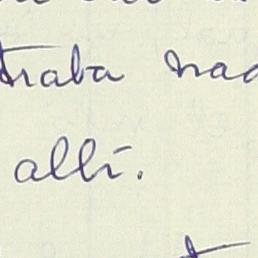 traba nad
allí.